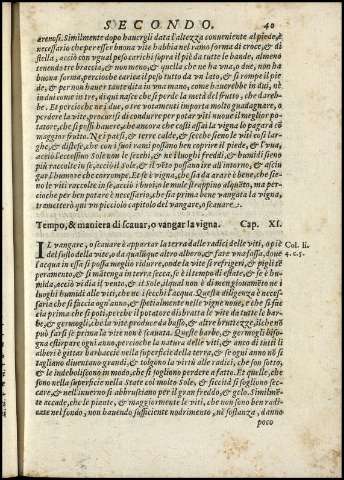 SECONDO. 40
arenosi. Similmente dopo hauergli data l'altezza conueniente al piede, è
necessario che per esser buona vite habbia nel ramo forma di croce, & di
stella, acciò con vgual peso carichi supra il piè da tutte le bande, almeno
tenendo tre braccia, & non meno, & quella che ne ha vna, o due, non ha
buona forma, percioche carica il peso tutto da vn lato, & si rompe il pie
de, & per non hauer tanta dita in vna mano, come hauerebbe in dui, nè
in dui come in tre, di qui nasce che si perde la metà del frutto, che darebbe
be. Et percioche ne i due, o tre votamenti importa molto guadagnare, o
perdere la vite, procurisi di condurre per potar viti nuoue il meglior po-
tatore, che si possi hauere, che ancora che costi assai la vigna lo pagarà cō
maggior frutto. Ne i paesi, & terre calde, & secche sieno le viti così lar-
ghe, & distese, che con i suoi rami possano ben coprire il piede, & l'vua,
acciò l'eccessiuo Sole non le secchi, & ne i luoghi freddi, & humidi sieno
più raccolte in se, acciò il sole, & il vēto possano ire all'intorno, & asciu
gar l'humore che corrompe. Et se è vigna, che sia da arare è bene, che sie-
no le viti raccolte in se, acciò i buoi, o le mule strappino alquāto, ma per-
cioche per ben potare è necessario, che sia prima bene vangata la vigna,
tratterò qui vn picciolo capitolo del vangare, o scauare.
Tempo, & maniera di scauar, o vangar la vigna. Cap. XI.
IL vangare, o scauare è appartar la terra dalle radici delle viti, o piè
del fusto della vite, o da qualsiuoglia altro albero, & fare vna fossa, doue
l'acqua in essa si possa meglio ridurre, onde la vite si refrigeri, & pigli tē
peramento, & si mātenga in terra secca, se è tempo di estate, & se è hu-
mida, acciò vi dia il vento, & il Sole, il qual non è di meno giouamēto ne i
luoghi humidi alle viti, che ne i secchi l'acqua. Questa diligenza è neces-
saria che si faccia qu'anno, & spetialmente nelle vigne nuoue, & che si fac
cia prima che si poti, perche il potatore disbratta le vite da tutte le bar-
be, & germogli, che la vite produce da basso, & altre bruttezze, ilche nō
può farsi se prima la vite non è scauata. Queste barbe, & germogli biso-
gna estirpare ogni anno, percioche la natura delle viti, & anco di tutti li
alberi è gittar barbaccie nella superficie della terra, & se ogni anno nō si
tagliano diuentano grandi, & tolgono la virtù alle radici, che son sotto,
& le indeboliscono in modo, che si sogliono perdere a fatto. Et quelle, che
sono nella superficie nella State col molto Sole, & siccità si sogliono sec-
care, & nell'inuerno si abbrustiano per il gran freddo, & gelo. Similmē-
te accade, che le piante, & maggiormente le viti, che non sono ben radi-
cate nel fondo, non hauendo sufficiente nodrimento, nè sostanza, danno
poco
Col. li.
4. c. 5.